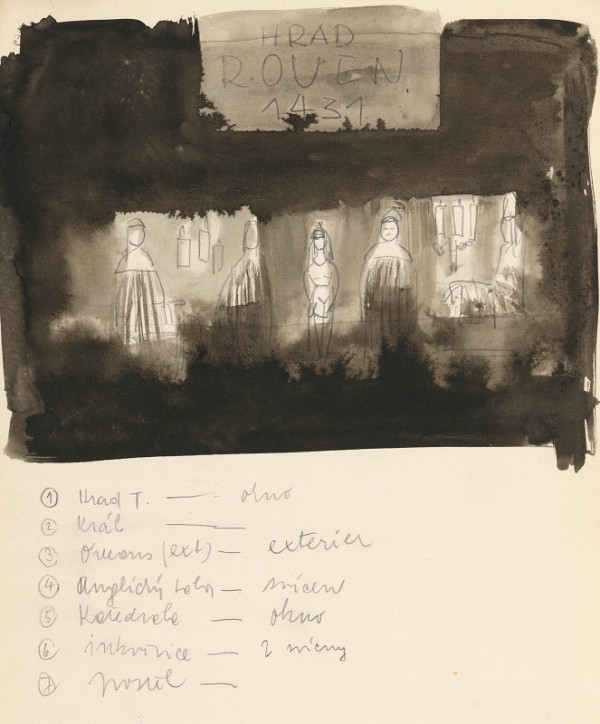 HRAD
ROUEN
1431
① Hrad T. — okno
② Král —
③ Orleans (ext) — exterier
④ Anglický tabor — svícen
⑤ Katedrala — okno
⑥ inkvizice — 2 svícny
⑦ postel —